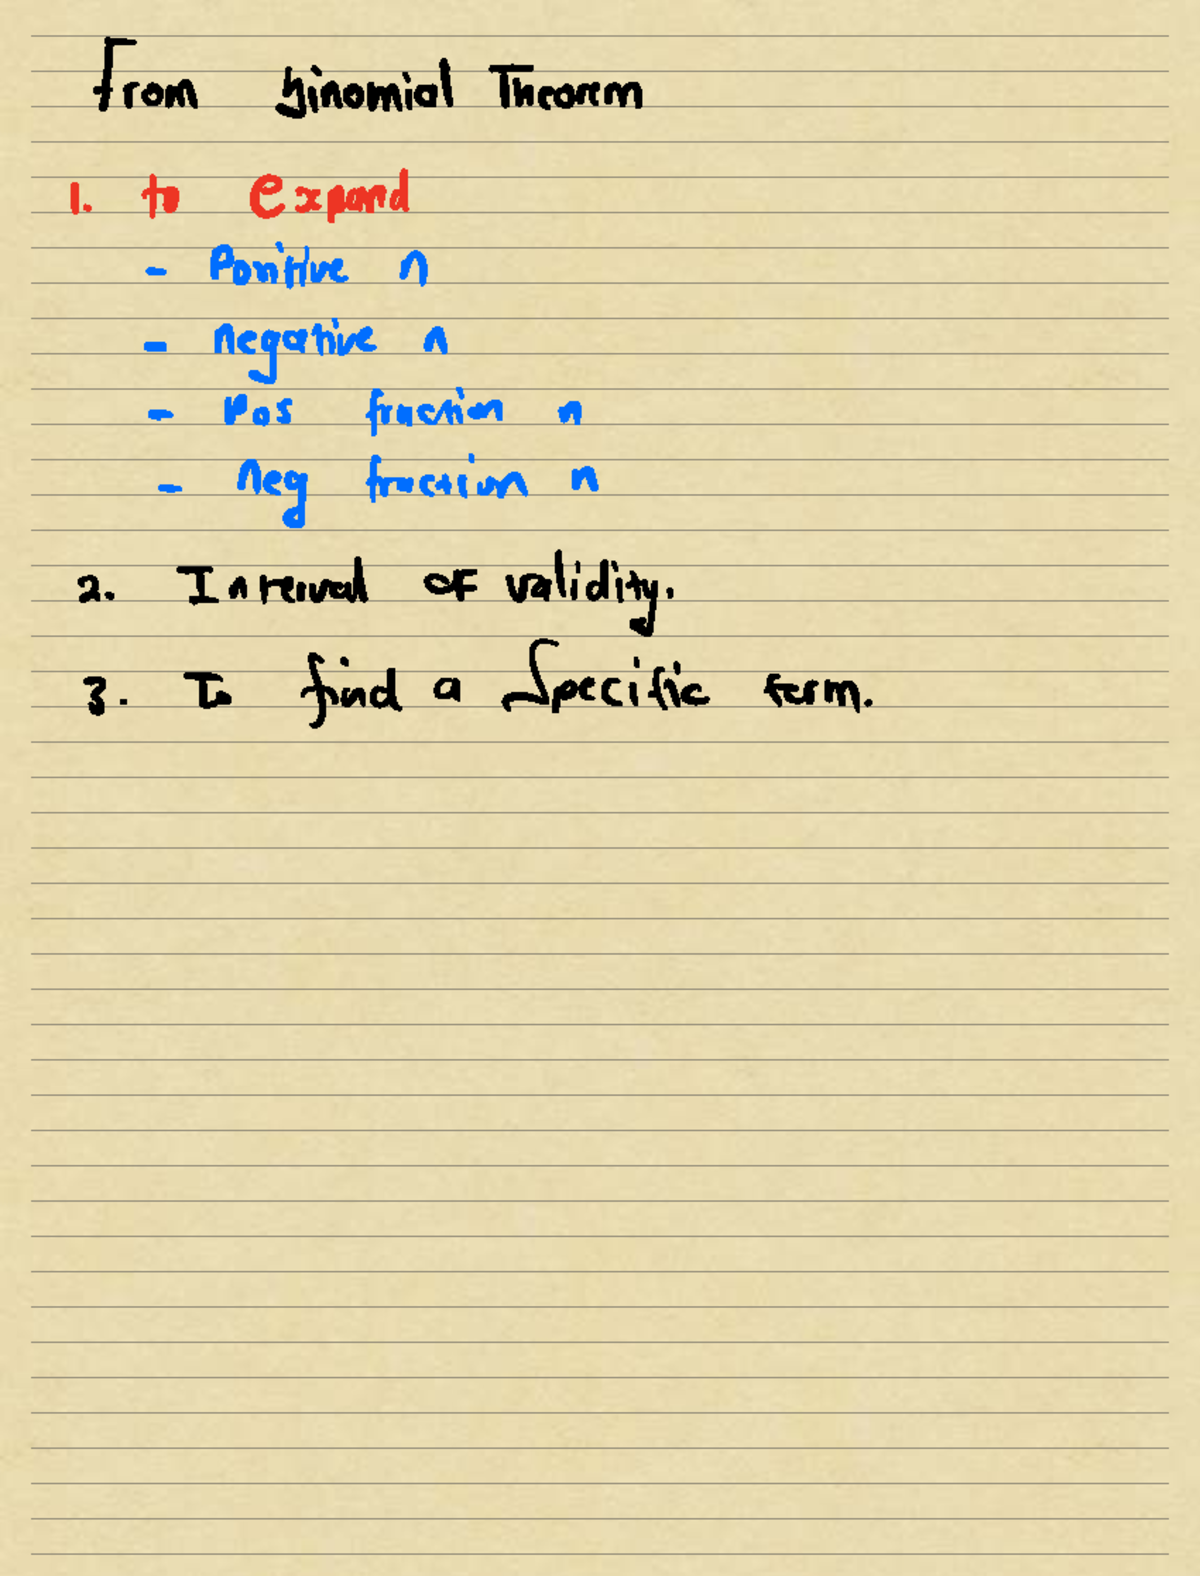 From Binomial Theorem
1. to expand
- Positive n
- negative n
- Pos fraction n
- Neg fraction n
2. Interval of validity.
3. To find a Specific term.